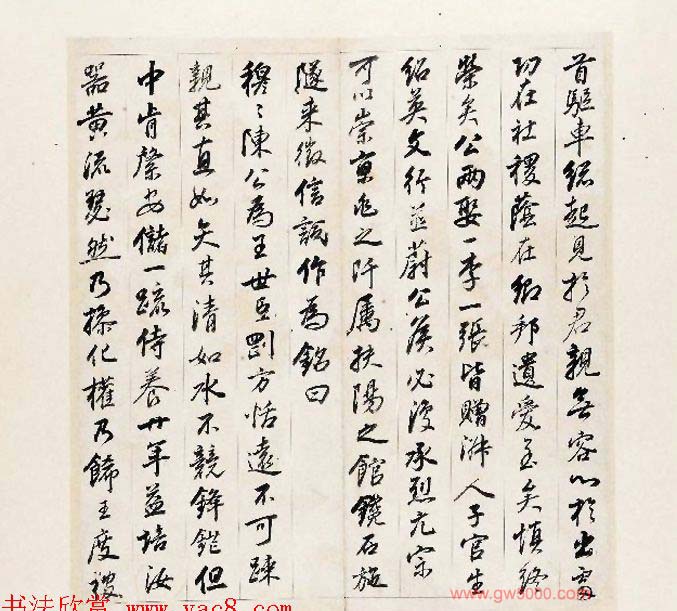 首驅車總起見於君親無容心於出處
功在社稷蔭在鄉邦遺愛至矣慎終
榮矣公兩娶一李一張皆贈淑人子官生
紹英文行並蔚公侯必復承烈亢宗
可以崇直臣之阡屬扶陽之館鑱石旌
隧来徵信誠作為銘曰
穆〻陳公為王世臣罰方恬遠不可踈
親其直如矢其清如水不競鋒鋩但
中肯綮安儲一疏侍養廿年益培汝
器黄流瑟然乃操化權乃飾王度
书法欣赏 www.yac8.com
www.gw5000.com